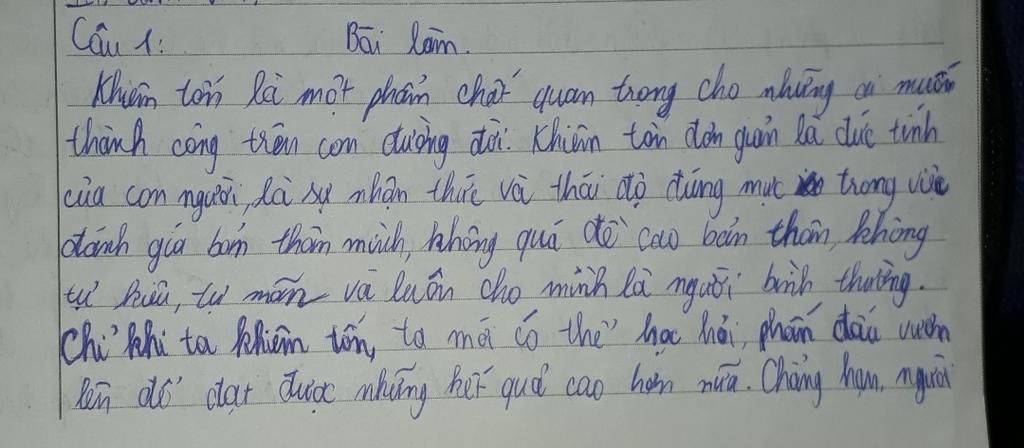 Câu 1: Bài làm.
Khiêm tốn là một phẩm chất quan trọng cho những ai muốn
thành công trên con đường đời. Khiêm tốn đơn giản là đức tính
của con người, là sự nhận thức và thái độ đúng mực trong việc
đánh giá bản thân mình, không quá đề cao bản thân, không
tự kiêu, tự mãn và luôn cho mình là người bình thường.
Chỉ khi ta khiêm tốn, ta mới có thể học hỏi, phấn đấu vươn
lên để đạt được những kết quả cao hơn nữa. Chẳng hạn, người